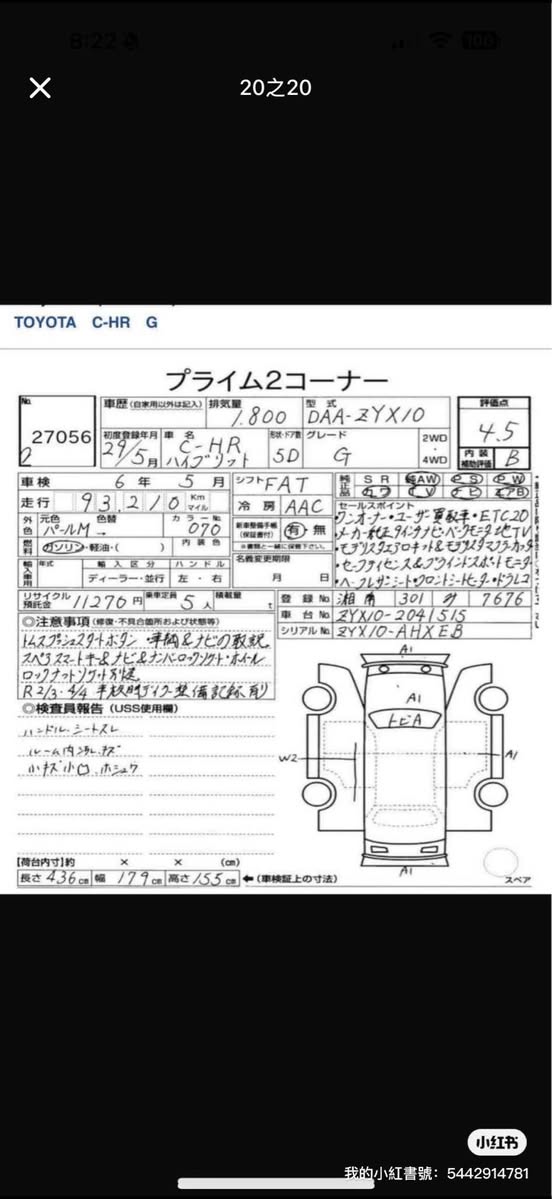 8:22
100
20之20
TOYOTA C-HR G
プライム2コーナー
No.
27056
2
車歴(自家用以外は記入)
排気量
1.800
型式
DAA-ZYX10
評価点
4.5
初度登録年月
29/5月
車名
C-HR
ハイブリット
形状・ドア数
5D
グレード
G
2WD
・
4WD
内装
補助評価
B
車検 6年 5月
シフト FAT
純正品 SR AW PS PW
カワ TV ナビ エアB
走行 93,210 Km マイル
冷房 AAC
外色 元色 パールM 色替 → カラーNo. 070
燃料 ガソリン・軽油・( ) 内装色
新車整備手帳(保証書付) 有・無
※書類と一緒に保管下さい。
セールスポイント
・ワンオーナー・ユーザー買取車・ETC2.0
・メーカー純正9インチナビ・バックモニタ・地TV
・モデリスタエアロキット&モデリスタマフラーカッタ
・セーフティセンス&ブラインドスポットモニター
・パールサンシート・フロントシートヒーター・ドラレコ
輸入車用 年式 輸入区分 ハンドル
ディーラー・並行 左・右
名義変更期限
月 日
リサイクル預託金 11270円 乗車定員 5人 積載量 t
登録No. 湘南 301 7676
車台No. ZYX10-2041515
シリアルNo. ZYX10-AHXEB
◎注意事項(修復・不具合箇所および状態等)
トムスプッシュスタートボタン 車輌&ナビの取説
スペアスマートキー&ナビ&ナンバーロックソケト・ホイール
ロックナットソケット別送
R2/3・4/4
整備記録有り
◎検査員報告(USS使用欄)
ハンドル.シートスレ
ルーム内汚れ.キズ
小キズ小凹.ホシュウ
A1
A1
トビA
W2
A1
A1
スペア
【荷台内寸】約 × × (cm)
長さ436cm 幅179cm 高さ155cm ←(車検証上の寸法)
小红书
我的小紅書號：5442914781